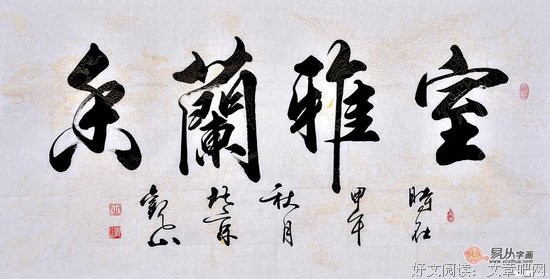 室雅蘭香
時在
甲午
秋月
易从字画
好文阅读：文章吧网